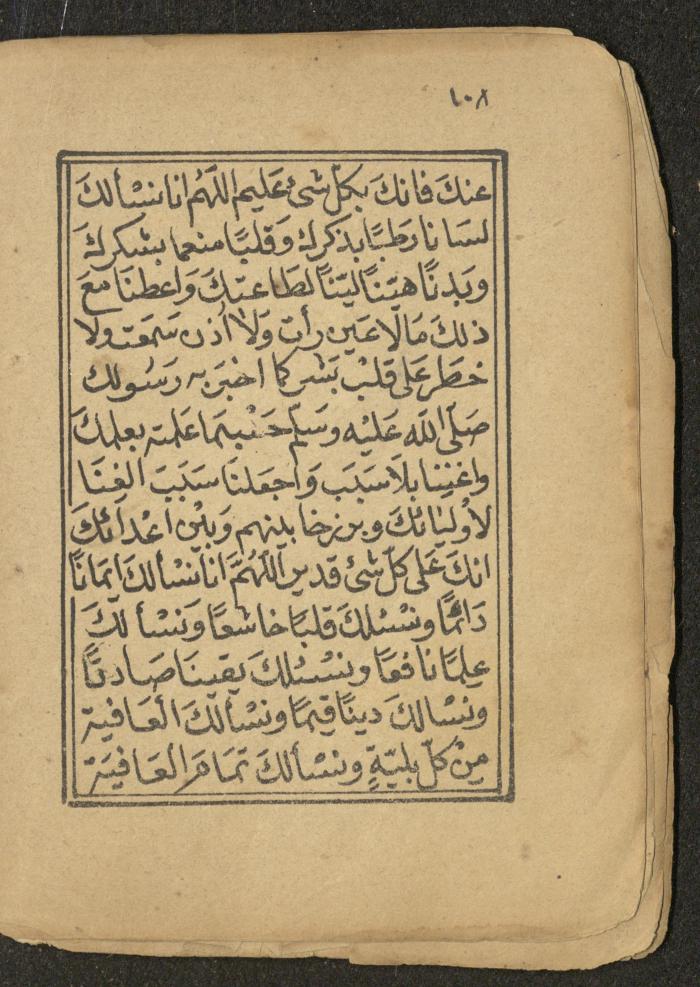 ١٠٨
عنكَ فانكَ بكلّ شئ عَليم اللهُم انا نسْألكَ
لسَانا رَطبًا بذكركَ وَقلبًا منعما بشكركَ
وبَدنًا هيّنًا ليّنًا لطَاعتكَ وَاعطنَا معَ
ذلكَ مَالاعَين رأت وَلا اُذن سَمعَت ولا
خطَرعَلى قلبْ بَشر كما اخبَربه رَسُولك
صَلّى اللّه عَليْه وسَلّم حَسْبَمَا عَلمته بعلمكَ
واغنِنا بلاَ سَبَب وَاجعَلنَا سَبَبَ الغنَا
لأوليَائكَ وبرزخا بينهم وَبيْن اعْدَائكَ
انكَ عَلى كلّ شئ قدير اللّهُمَّ انا نسْألكَ ايمَانًا
دَائمًا ونسْئلكَ قلبًا خاشعًا وَنسْألكَ
علمًا نافعًا ونسْئلكَ يقينًا صَادقًا
ونسْالكَ دينًا قيّمًا ونسْألكَ الْعَافية
مِنْ كلّ بليّةٍ ونسْألكَ تمَامَ الْعَافيَة